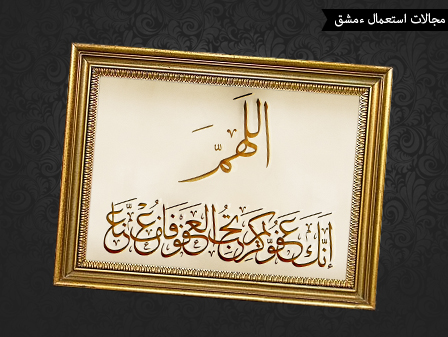 مجالات استعمال ءمشق
اللَّهُمَّ
إِنَّكَ عَفُوٌّ كَرِيمٌ تُحِبُّ الْعَفْوَ فَاعْفُ عَنَّا